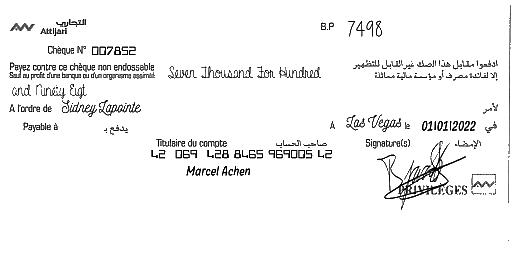 التجاري
Attijari
B.P 7498
Chèque N° 007852
Payez contre ce chèque non endossable
Sauf au profit d'une banque ou d'un organisme assimilé
Seven Thousand For Hundred
ادفعوا مقابل هذا الصك غير القابل للتظهير
إلا لفائدة مصرف أو مؤسسة مالية مماثلة
and Ninety Eigt
A l'ordre de Sidney Lapointe
لأمر
Payable à
يدفع بـ
A Las Vegas le 01/01/2022 في
Titulaire du compte صاحب الحساب
Signature(s) الإمضاء
42 069 428 8465 969005 42
Marcel Achen
PRIVILEGES